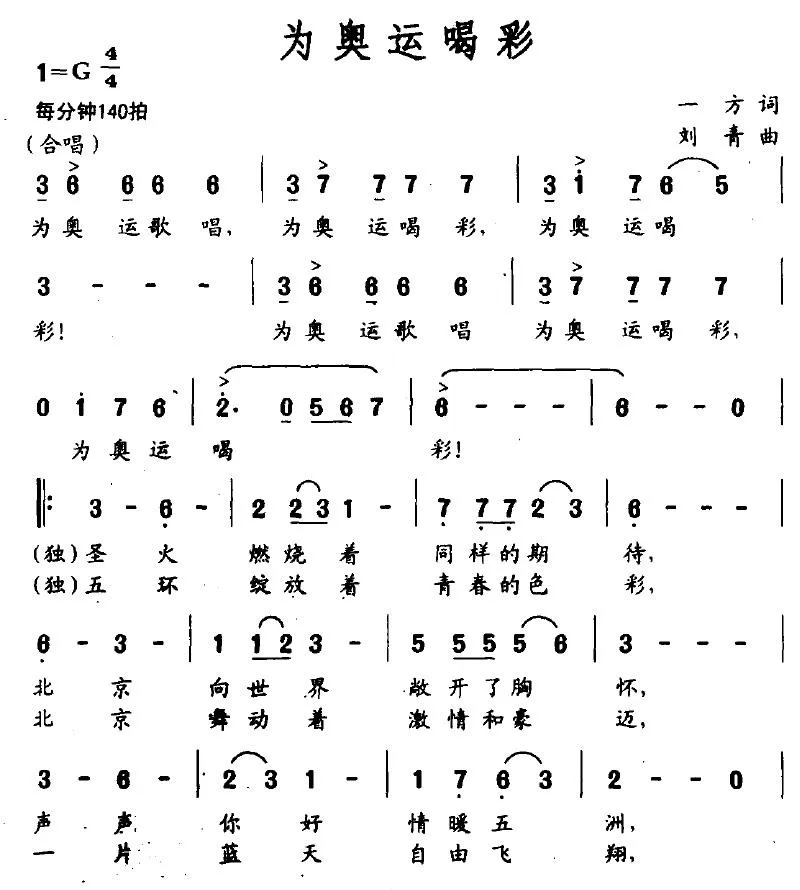 为奥运喝彩
1=G 4/4
每分钟140拍
一 方 词
(合唱)
刘 青 曲
3 6 6 6 6 | 3 7 7 7 7 | 3 1 7 6 5 |
为奥 运歌 唱, 为奥 运喝 彩, 为奥 运喝
3 - - - | 3 6 6 6 6 | 3 7 7 7 7 |
彩! 为奥 运歌 唱 为奥 运喝 彩,
0 1 7 6 | 2. 0 5 6 7 | 6 - - - | 6 - - 0 |
为奥运 喝 彩!
|: 3 - 6 - | 2 2 3 1 - | 7 7 7 2 3 | 6 - - - |
(独)圣 火 燃烧 着 同 样的期 待,
(独)五 环 绽放 着 青 春的色 彩,
6 - 3 - | 1 1 2 3 - | 5 5 5 5 6 | 3 - - - |
北 京 向世 界 敞开了胸 怀,
北 京 舞动 着 激情和豪 迈,
3 - 6 - | 2 3 1 - | 1 7 6 3 | 2 - - 0 |
声 声 你 好 情暖五 洲,
一 片 蓝 天 自由飞 翔,